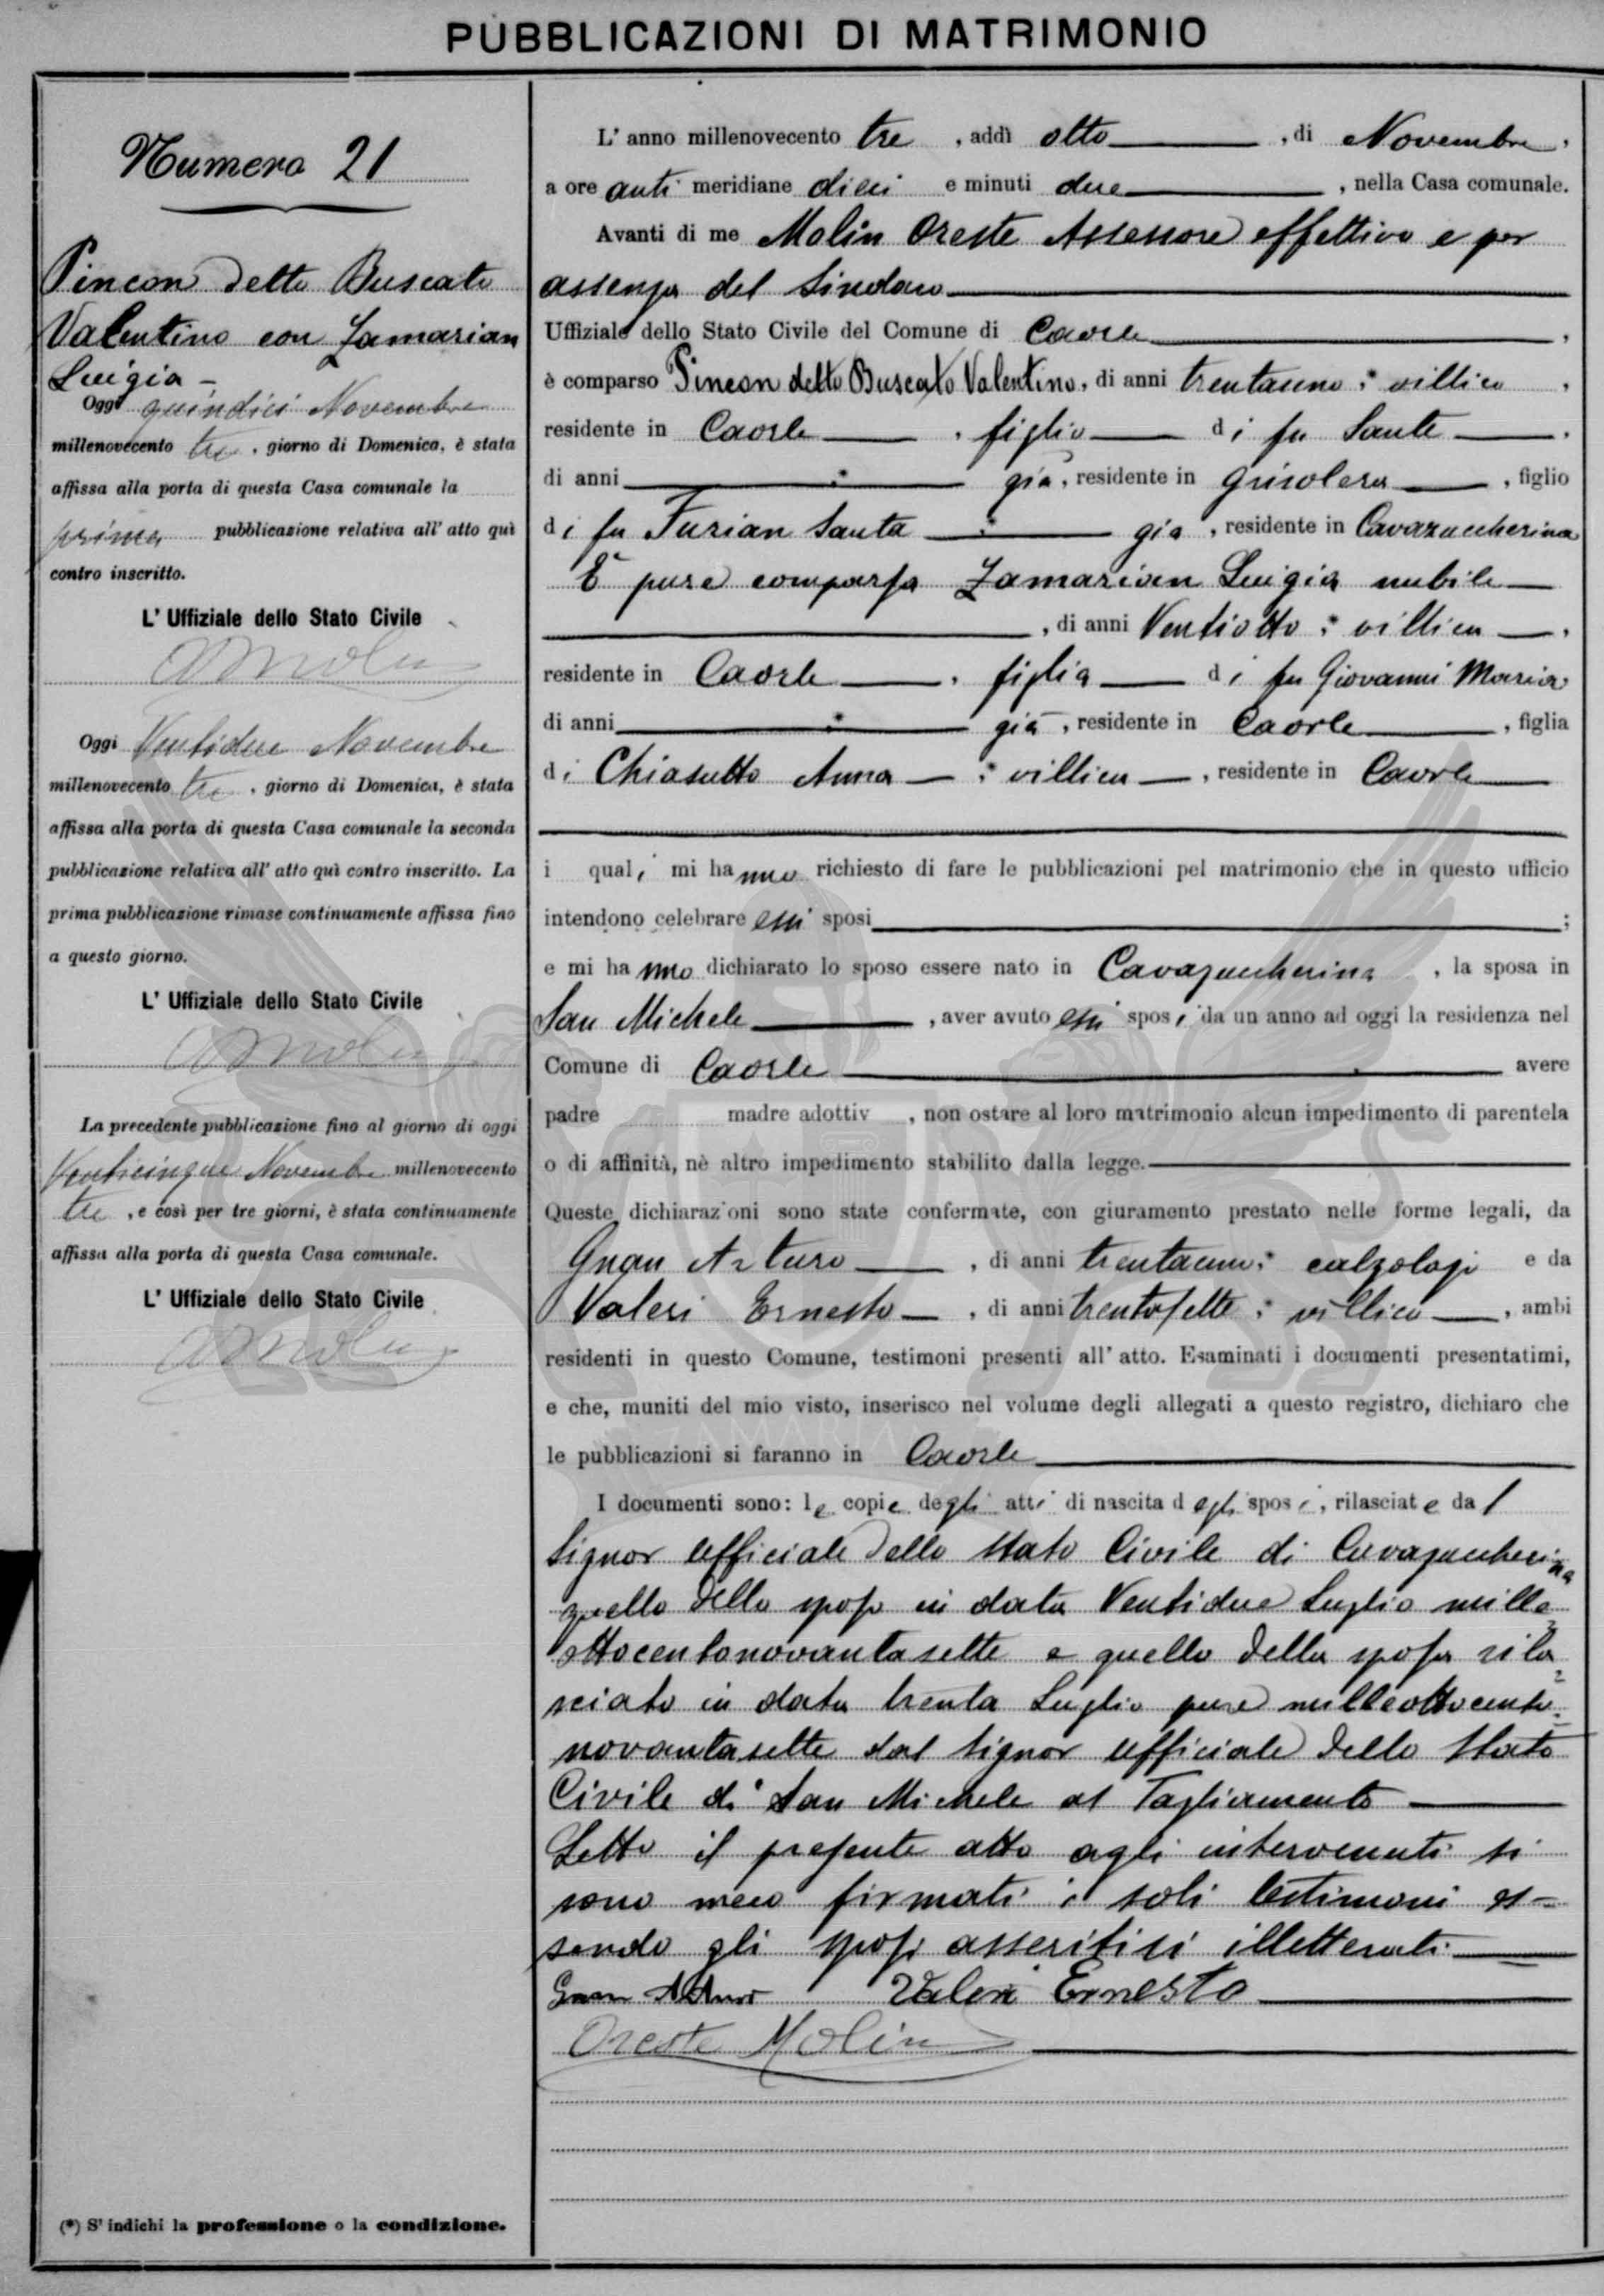 PUBBLICAZIONI DI MATRIMONIO
Numero 21
Pincon detto Buscato
Valentino con Zamarian
Luigia -
Oggi quindici Novembre
millenovecento tre, giorno di Domenica, è stata
affissa alla porta di questa Casa comunale la
prima pubblicazione relativa all' atto quì
contro inscritto.
L' Uffiziale dello Stato Civile
Oggi Ventidue Novembre
millenovecento tre, giorno di Domenica, è stata
affissa alla porta di questa Casa comunale la seconda
pubblicazione relativa all' atto quì contro inscritto. La
prima pubblicazione rimase continuamente affissa fino
a questo giorno.
L' Uffiziale dello Stato Civile
La precedente pubblicazione fino al giorno di oggi
Venticinque Novembre millenovecento
tre, e così per tre giorni, è stata continuamente
affissa alla porta di questa Casa comunale.
L' Uffiziale dello Stato Civile
(*) S' indichi la professione o la condizione.
L' anno millenovecento tre, addì otto, di Novembre,
a ore anti meridiane dieci e minuti due, nella Casa comunale.
Avanti di me Molin Oreste Assessore effettivo e per
assenza del Sindaco
Uffiziale dello Stato Civile del Comune di Caorle,
è comparso Pincon detto Buscato Valentino, di anni trentauno, * villico,
residente in Caorle, figlio di fu Sante,
di anni * già, residente in Grisolera, figlio
di fu Furian Santa * già, residente in Cavazuccherina
È pure comparsa Zamarian Luigia nubile
, di anni Ventiotto, * villica,
residente in Caorle, figlia di fu Giovanni Maria
di anni * già, residente in Caorle, figlia
di Chiasutto Anna, * villica, residente in Caorle
i quali mi hanno richiesto di fare le pubblicazioni pel matrimonio che in questo ufficio
intendono celebrare essi sposi;
e mi hanno dichiarato lo sposo essere nato in Cavazuccherina, la sposa in
San Michele, aver avuto essi sposi da un anno ad oggi la residenza nel
Comune di Caorle avere
padre madre adottiv , non ostare al loro matrimonio alcun impedimento di parentela
o di affinità, nè altro impedimento stabilito dalla legge.
Queste dichiarazioni sono state confermate, con giuramento prestato nelle forme legali, da
Gnan Arturo, di anni trentauno, * calzolajo e da
Valeri Ernesto, di anni trentasette, * villico, ambi
residenti in questo Comune, testimoni presenti all' atto. Esaminati i documenti presentatimi,
e che, muniti del mio visto, inserisco nel volume degli allegati a questo registro, dichiaro che
le pubblicazioni si faranno in Caorle
I documenti sono: le copie degli atti di nascita degli sposi, rilasciate dal
Signor Ufficiale dello Stato Civile di Cavazuccherina
quello dello sposo in data Ventidue Luglio mille=
ottocentonovantasette e quello della sposa rila=
sciato in data trenta Luglio pure milleottocento=
novantasette dal Signor Ufficiale dello Stato
Civile di San Michele al Tagliamento
Letto il presente atto agli intervenuti si
sono meco firmati i soli testimoni es=
sendo gli sposi asseritisi illetterati.
Gnan Arturo Valeri Ernesto
Oreste Molin